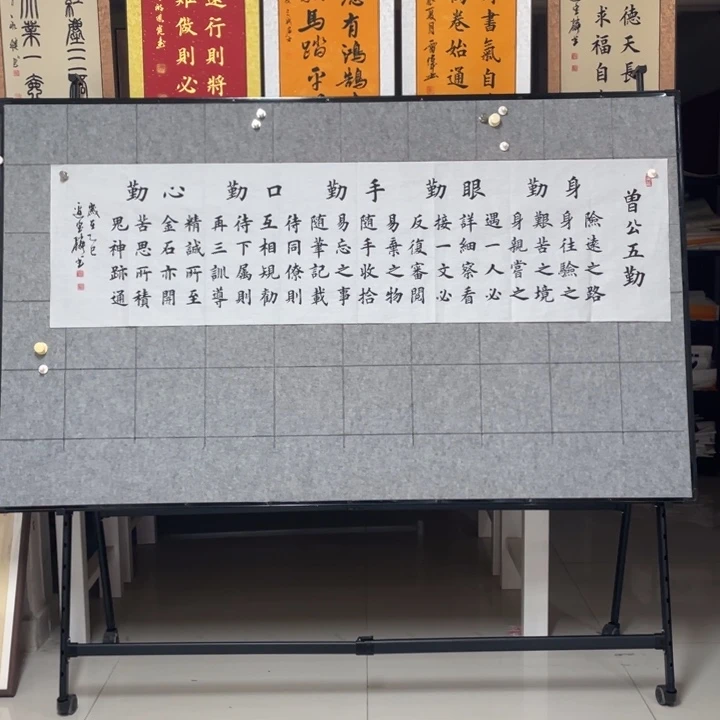 德天長
求福自
書氣自
卷始通
有鴻鵠
馬踏平
行則將
難做則必
業一
曾公五勤
身勤
險遠之路
身往驗之
艱苦之境
身親嘗之
眼勤
遇一人必
詳細察看
接一文必
反復審閱
手勤
易棄之物
隨手收拾
易忘之事
隨筆記載
口勤
待同僚則
互相規勸
待下属則
再三訓導
心勤
精誠所至
金石亦開
苦思所積
鬼神跡通
歲在乙巳